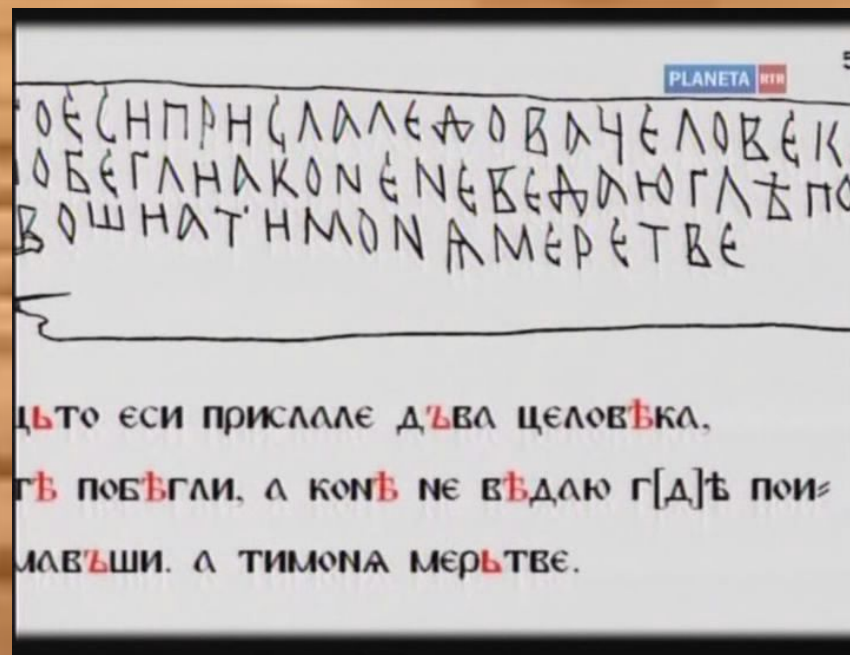 PLANETA RTR
ОЄСНПРНСЛАЛЄДОВАЧЄЛОВЄК
ОБЄГЛНАКОNЄNЄВЄДАЮГЛѢПО
ВОШНАТНМОNѦМЄРЄТВЄ
цьто єси прислалє дъва цєловѣка,
гѣ побѣгли, а конѣ нє вѣдаю г[д]ѣ пои⸗
мавъши. а тимонѧ мєрьтвє.